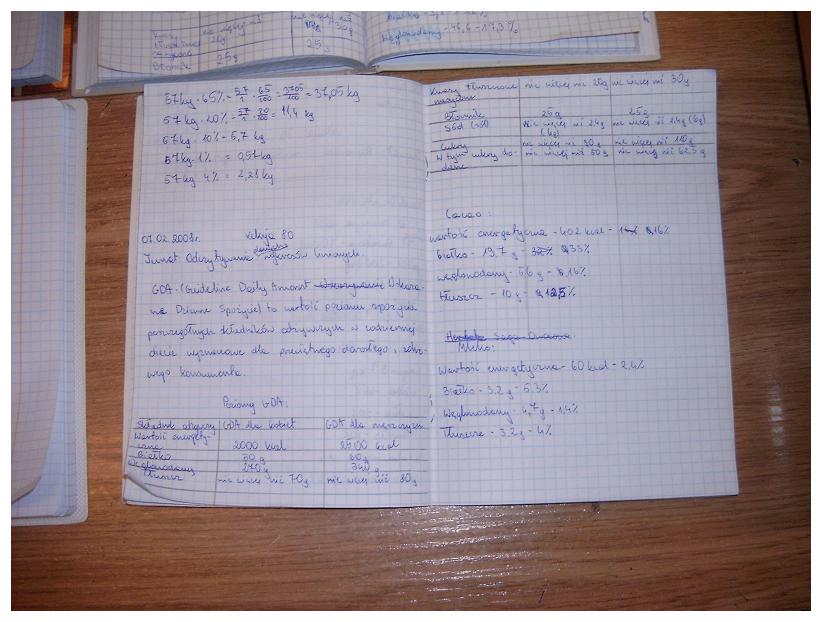 nie więcej niż
20g
30g
25g
25g
Błonnik
Węglowodany - 46,6 - 17,3%
57kg · 65% = 57/1 · 65/100 = 3705/100 = 37,05 kg
57kg · 20% = 57/1 · 20/100 = 11,4 kg
57kg · 10% = 5,7 kg
57kg · 1% = 0,57kg
57kg 4% = 2,28kg
07.02.2008r. Lekcja 80
Temat Odczytywanie liniowych.
GDA - (Guideline Daily Amount Wskaza-
ne Dzienne Spożycie) to wartość poziomu spożycia
poszczególnych składników odżywczych w codziennej
diecie wyznaczone dla przeciętnego dorosłego i zdro-
wego konsumenta.
Poziomy GDA:
Składnik odżywczy GDA dla kobiet GDA dla mężczyzn
Wartość energety-
czna 2000 kcal 2500 kcal
Białko 50g 60g
Węglowodany 270g 340g
Tłuszcz nie więcej niż 70g nie więcej niż 80g
Kwasy tłuszczowe nie więcej niż 20g nie więcej niż 30g
nasycone
Błonnik 25g 25g
Sód nie więcej niż 2,4g (6g) nie więcej niż 2,4g (6g)
Cukry nie więcej niż 90g nie więcej niż 110g
W tym cukry do- nie więcej niż 50g nie więcej niż 62,5g
dane
Cacao:
wartość energetyczna - 402 kcal - 16%
Białko - 19,7g - 33%
węglowodany - 56g - 16%
tłuszcz - 10g - 12,5%
Mleko:
Wartość energetyczna - 60 kcal - 2,4%
Białko - 3,2g - 5,3%
Węglowodany - 4,7g - 1,4%
Tłuszcze - 3,2g - 4%